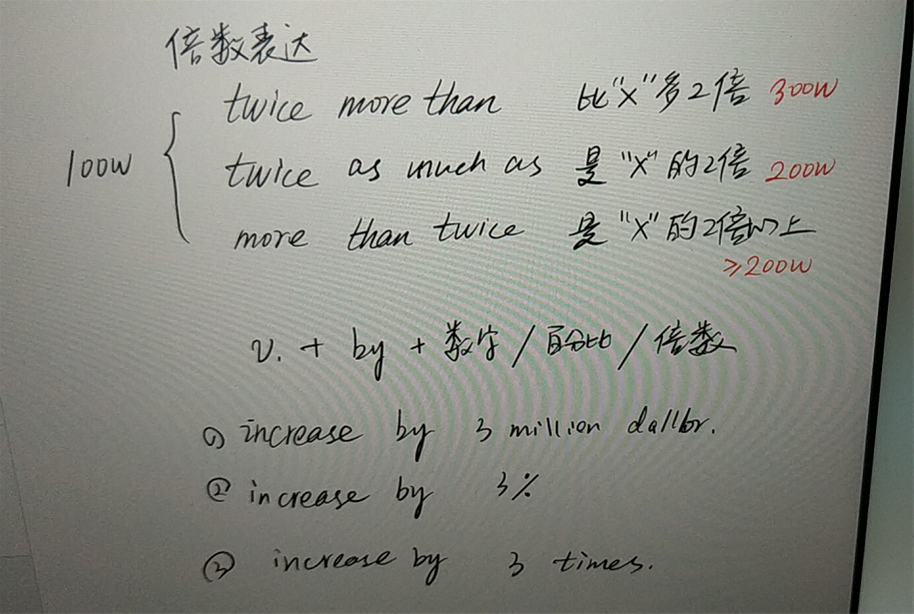 倍数表达
twice more than 比"X"多2倍 300W
100W { twice as much as 是"X"的2倍 200W
more than twice 是"X"的2倍以上
≥200W
v. + by + 数字/百分比/倍数
① increase by 3 million dallor.
② increase by 3%
③ increase by 3 times.